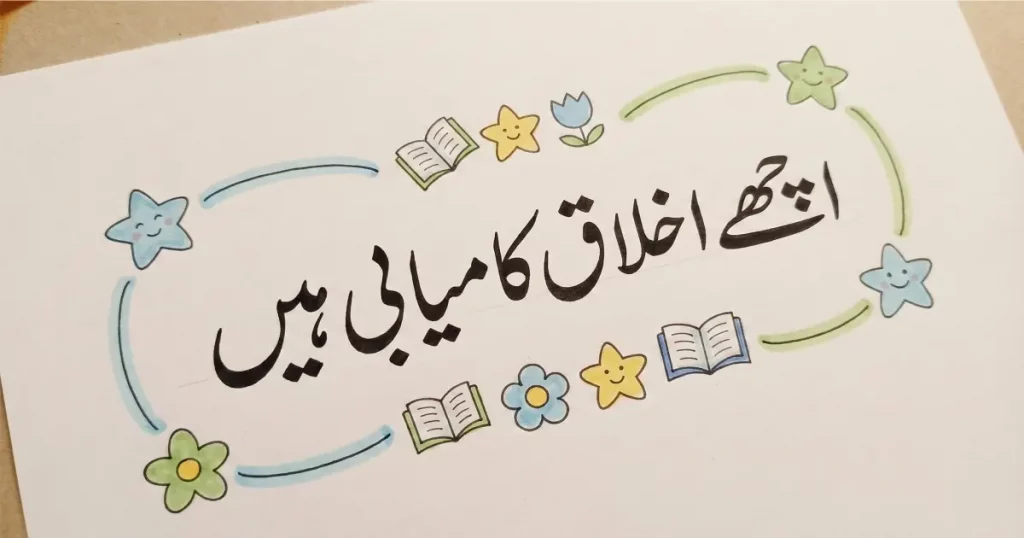 اچھے اخلاق کامیابی ہیں